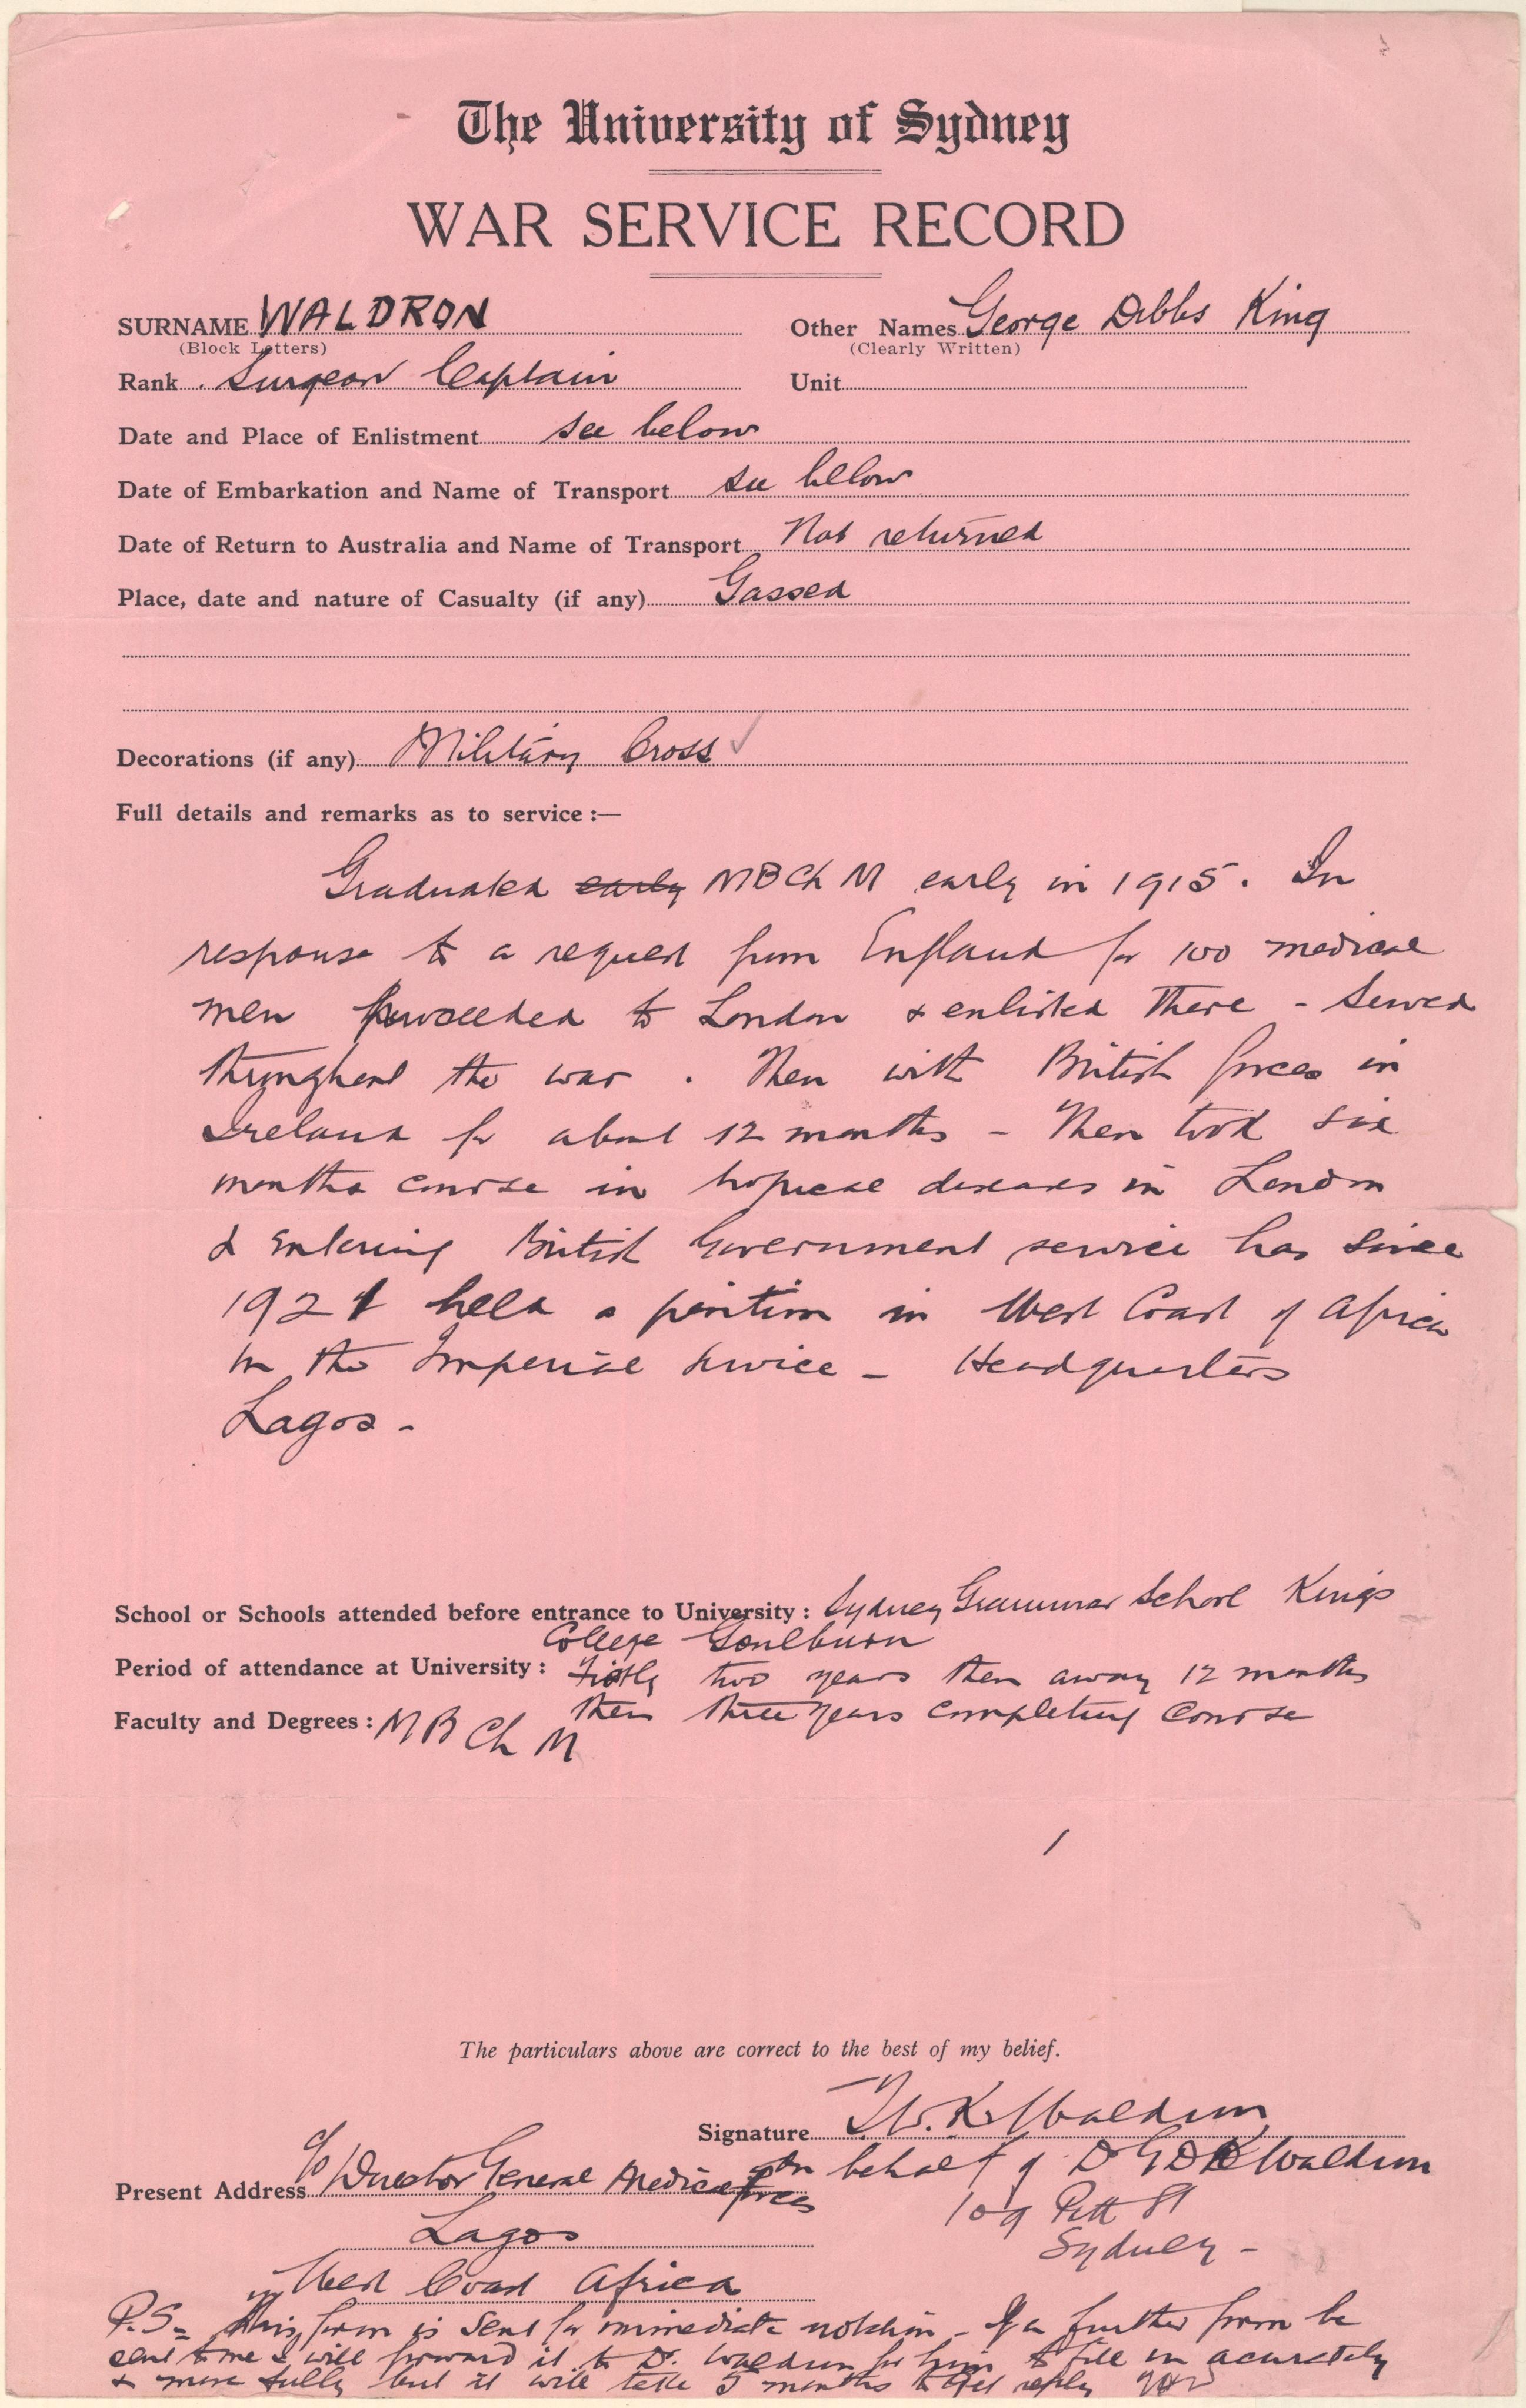 The University of Sydney
WAR SERVICE RECORD
SURNAME WALDRON Other Names George Dibbs King
(Block Letters) (Clearly Written)
Rank Surgeon Captain Unit
Date and Place of Enlistment see below
Date of Embarkation and Name of Transport see below
Date of Return to Australia and Name of Transport Not returned
Place, date and nature of Casualty (if any) Gassed
Decorations (if any) Military Cross ✓
Full details and remarks as to service :—
Graduated early MB Ch M early in 1915. In
response to a request from England for 100 medical
men proceeded to London & enlisted there - Served
throughout the war. Then with British forces in
Ireland for about 12 months - Then took six
months course in tropical diseases in London
& entering British Government service has since
1921 held a position in West Coast of Africa
in the Imperial Service - Headquarters
Lagos -
School or Schools attended before entrance to University : Sydney Grammar School Kings
College Goulburn
Period of attendance at University : Firstly two years then away 12 months
then three years completing course
Faculty and Degrees : MB Ch M
The particulars above are correct to the best of my belief.
Signature T.W.K. Waldron
on behalf of Dr G D K Waldron
Present Address c/o Director General Medical Forces
109 Pitt St
Lagos
Sydney -
West Coast Africa
P.S. - This form is sent for immediate notation - If a further form be
sent to me I will forward it to Dr. Waldron for him to fill in acurately
& more fully but it will take 5 months to get reply